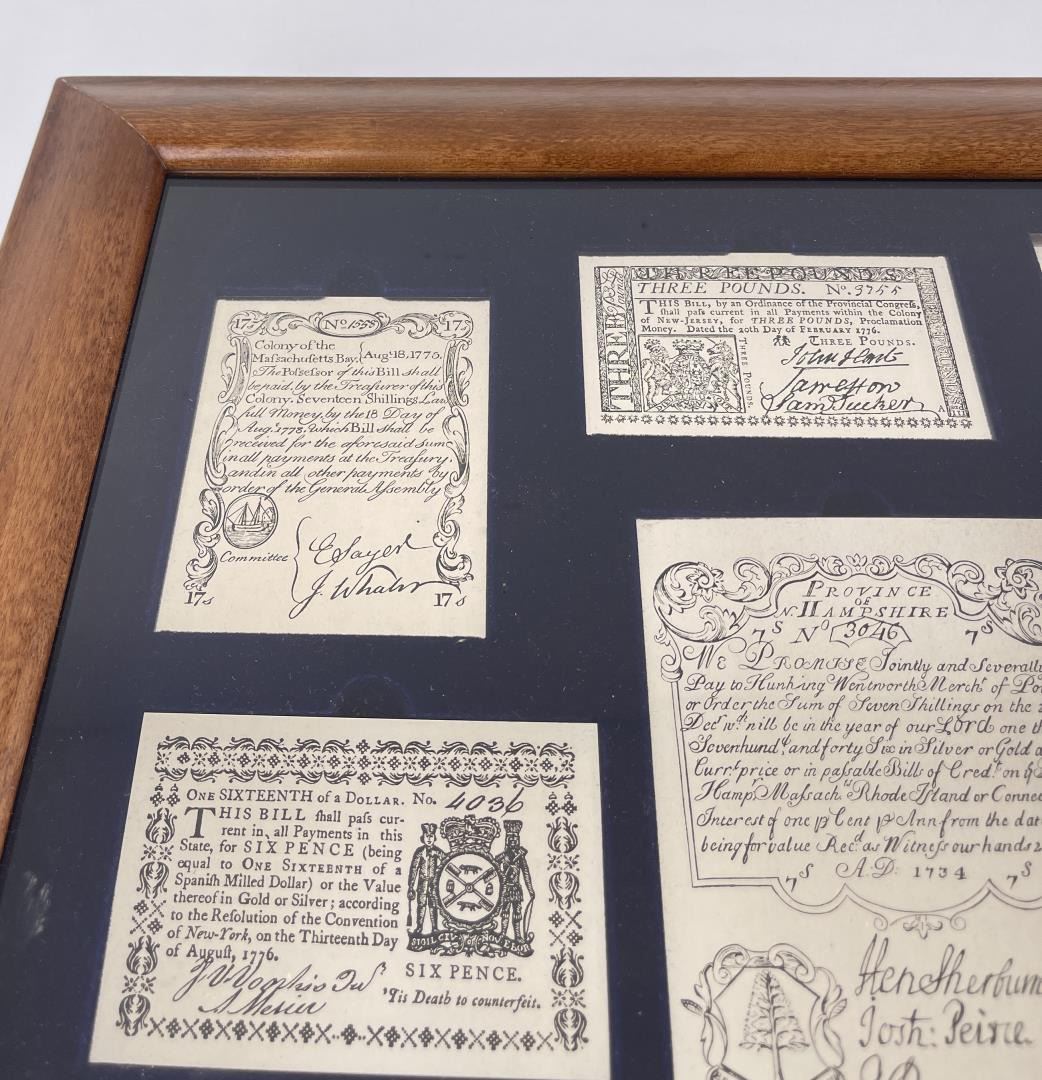 17s No. 1555 17s
Colony of the
Massachusetts Bay. { Aug.t 18, 1776.
The Possessor of this Bill shall
be paid, by the Treasurer of this
Colony. Seventeen Shillings. Law
full Money by the 18 Day of
Aug.t 1778, which Bill shall be
received for the aforesaid sum,
in all payments at the Treasury,
and in all other payments by
order of the General Assembly
Committee { E Sayer
J. Whaler
17s 17s
THREE POUNDS
THREE POUNDS. No. 3755
THIS BILL, by an Ordinance of the Provincial Congreſs,
ſhall paſs current in all Payments within the Colony
of NEW-JERSEY, for THREE POUNDS, Proclamation
Money. Dated the 20th Day of FEBRUARY 1776.
THREE POUNDS.
THREE
Three Pounds.
John Hart
Sam Tucker
PROVINCE
OF
N. HAMPSHIRE
7S No 3046 7S
We PROMISE Jointly and Severally
Pay to Hunking Wentworth Merch.t of
or Order the Sum of Seven Shillings on the
Dec.r wch will be in the year of our Lord one
Sevenhund.d and forty Six in Silver or Gold
Curr.t price or in paſsable Bills of Cred.t on
Hamp Maſsach.ts Rhode Iſland or
Interest of one p Cent p Ann from the
being for value Rec.d as Witneſs our hands
7S A.D: 1734 7S
Hen Sherburn
Josh: Peirce
ONE SIXTEENTH of a DOLLAR. No. 4036
THIS BILL ſhall paſs cur-
rent in all Payments in this
State, for SIX PENCE (being
equal to ONE SIXTEENTH of a
Spaniſh Milled Dollar) or the Value
thereof in Gold or Silver; according
to the Reſolution of the Convention
of New-York, on the Thirteenth Day
of Auguſt, 1776.
SIGIL CIV NOV EBOR
SIX PENCE.
'Tis Death to counterfeit.